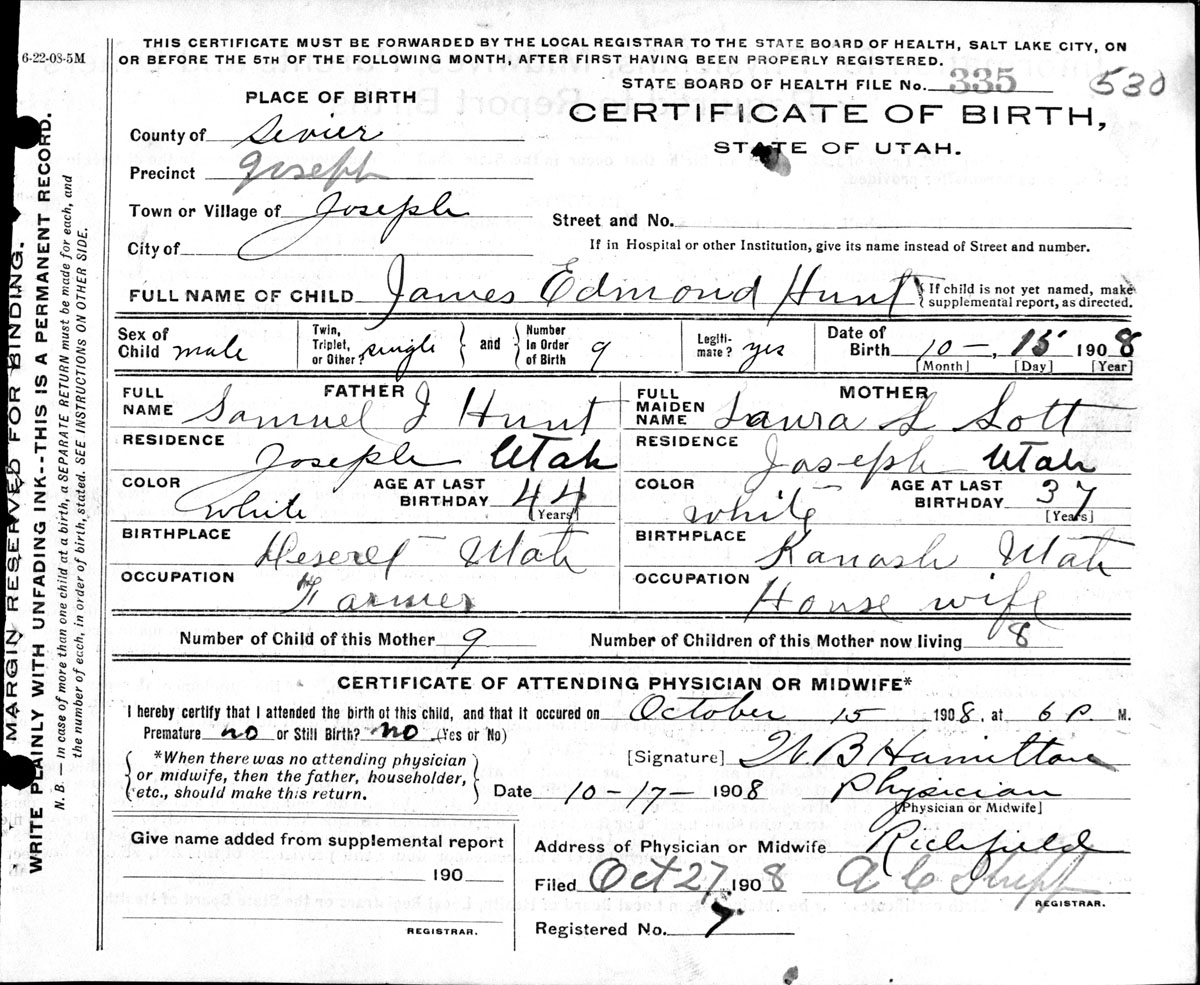 6-22-08-5M
THIS CERTIFICATE MUST BE FORWARDED BY THE LOCAL REGISTRAR TO THE STATE BOARD OF HEALTH, SALT LAKE CITY, ON
OR BEFORE THE 5TH OF THE FOLLOWING MONTH, AFTER FIRST HAVING BEEN PROPERLY REGISTERED.
STATE BOARD OF HEALTH FILE No. 335 530
PLACE OF BIRTH
CERTIFICATE OF BIRTH,
STATE OF UTAH.
County of Sevier
Precinct Joseph
Town or Village of Joseph
Street and No.
City of
If in Hospital or other Institution, give its name instead of Street and number.
FULL NAME OF CHILD James Edmond Hunt { If child is not yet named, make
supplemental report, as directed.
Sex of Child male
Twin, Triplet, or Other? single } and { Number In Order of Birth 9
Legiti- mate? yes
Date of Birth 10 -, 15 1908
[Month] [Day] [Year]
FATHER
FULL NAME Samuel J Hunt
RESIDENCE Joseph Utah
COLOR white AGE AT LAST BIRTHDAY 44 [Years]
BIRTHPLACE Deseret Utah
OCCUPATION Farmer
MOTHER
FULL MAIDEN NAME Laura L Sott
RESIDENCE Joseph Utah
COLOR white AGE AT LAST BIRTHDAY 37 [Years]
BIRTHPLACE Kanosh Utah
OCCUPATION House wife
Number of Child of this Mother 9 Number of Children of this Mother now living 8
CERTIFICATE OF ATTENDING PHYSICIAN OR MIDWIFE*
I hereby certify that I attended the birth of this child, and that it occured on October 15 1908, at 6 P M.
Premature no or Still Birth? no (Yes or No)
{ *When there was no attending physician
or midwife, then the father, householder,
etc., should make this return. }
[Signature] W. B Hamilton
Date 10-17-1908 Physician
[Physician or Midwife]
Give name added from supplemental report
190
REGISTRAR.
Address of Physician or Midwife Richfield
Filed Oct 27, 1908 A C
REGISTRAR.
Registered No. 7
MARGIN RESERVED FOR BINDING.
WRITE PLAINLY WITH UNFADING INK--THIS IS A PERMANENT RECORD.
N. B. — In case of more than one child at a birth, a SEPARATE RETURN must be made for each, and
the number of each, in order of birth, stated. SEE INSTRUCTIONS ON OTHER SIDE.